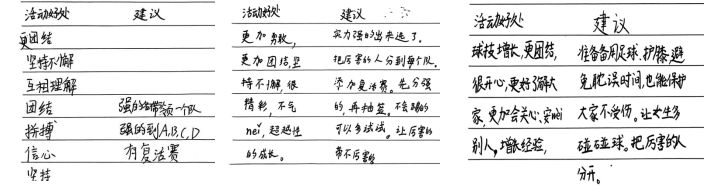 活动好处 建议
更团结
坚持不懈
互相理解
团结 强的带领一个队
拼搏 强的到A,B,C,D
信心 有复活赛
坚持
活动好处 建议
更加勇敢, 实力强的出来选了。
更加团结,坚 把厉害的人分到每个队。
持不懈,很 添加复活赛。先分强
精彩,不气 的,再抽签。不会踢的
nei,超越性 可以多试试。让厉害的
的成长。 带不厉害的
活动好处 建议
球技增长,更团结, 准备备用足球、护膝,避
很开心,更好了解大 免耽误时间,也能保护
家,更加会关心、安慰 大家不受伤。让女生多
别人,增长经验, 碰碰球。把厉害的人
分开。